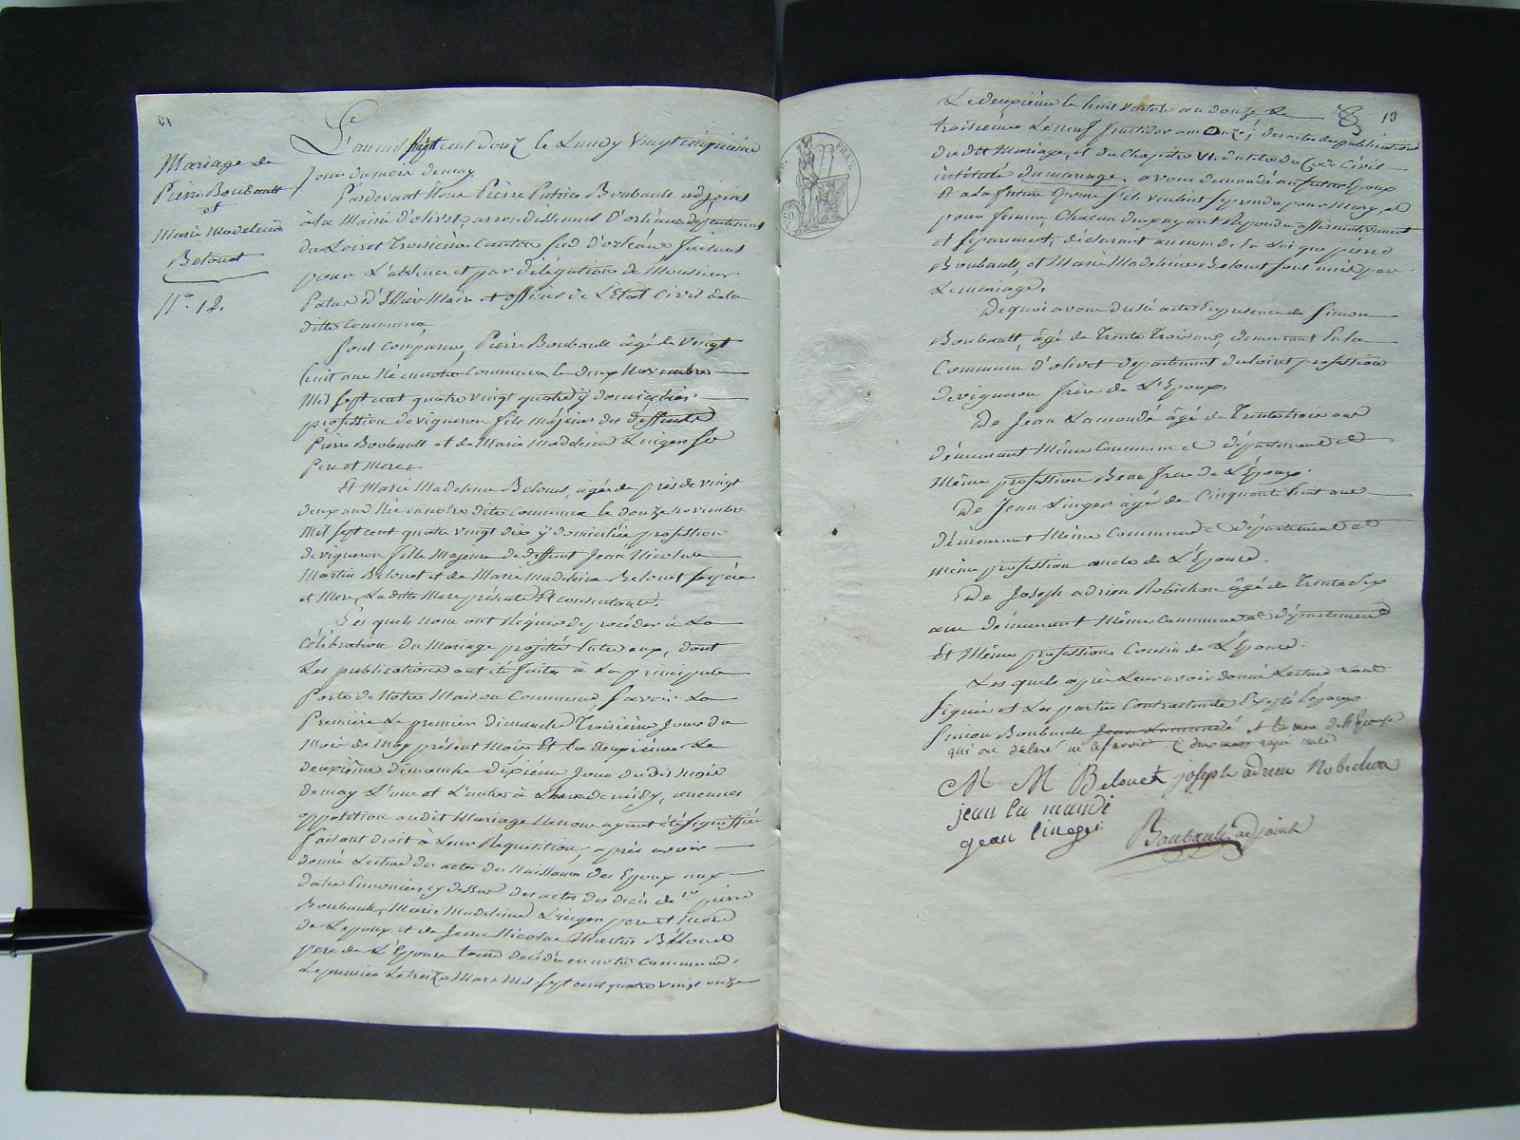 Mariage de
Pierre Boubault
et
Marie Madeleine
Belouet
N.° 12.
L'an mil huit cent douze le Lundy vingt cinquieme
Jour du mois de may
Pardevant Nous Pierre Patrice Boubault adjoint
à la Mairie d'olivet, arrondissement d'orléans département
du Loiret Troisieme Canton sud d'orléans faisant
pour L'absence et par délégation de Monsieur
Maire et officier de L'Etat Civil de la
ditte Commune
Sont comparus, Pierre Boubault âgé de vingt
huit ans Né en notre Commune le deux Novembre
Mil sept cent quatre vingt quatre y domicilié
profession de vigneron fils majeur des deffunts
Pierre Boubault et de Marie Madeleine Linger ses
Pere et Mere
Et Marie Madeleine Belouet, agée de près de vingt
deux ans Née en notre dite commune le douze novembre
Mil sept cent quatre vingt dix y domiciliée profession
de vigneron fille Majeure de deffunt Jean Nicolas
Martin Belouet et de Marie Madeleine Belouet ses père
et Mere, La ditte Mere présente Et consentante.
Les quels nous ont Requis de procéder à La
Célébration du Mariage projetté Entre eux, dont
Les publications ont été faites à La principale
Porte de Notre Maison Commune, Savoir La
Première Le premier dimanche Troisieme Jour du
Mois de May présent Mois Et La deuxième Le
deuxième dimanche dixieme Jour du dit Mois
de may L'une et L'autre à L'heure de midy, aucunes
opposition audit Mariage Ne nous ayant été signiffiée
faisant droit à Leur Réquisition, après avoir
donné Lecture des actes de Naissance des Epoux aux
dates Enoncées cy dessus des actes des décès de 1° pierre
Boubault, Marie Madeleine Linger pere et Mere
de L'Epoux et de Jean Nicolas Martin Bélouet
pere de L'Epouse tous décédés en notre Commune,
Le premier Le treize Mars Mil sept cent quatre vingt onze
13
Le deuxième le huit ventôse an douze Le
troisieme Le neuf fructidor an onze, des actes de publications
du dit Mariage, et du Chapitre VI. du titre du Code Civil
intitulé du mariage, avons demandé au futur Epoux
Et à la future Epouse s'ils veulent se prendre pour Mary, et
pour femme, Chacun d'eux ayant Répondu affirmativement
et séparément, déclarons au nom de La Loi que pierre
Boubault, et Marie Madeleine Belouet sont unis par
Le mariage.
De quoi avons dressé acte En présence de Simon
Boubault, âgé de Trente Trois ans, demeurant En La
Commune d'olivet département du Loiret profession
de vigneron frère de L'Epoux
De Jean Lamandé âgé de Trente trois ans
demeurant Même Commune et département et
Même profession Beau frere de L'Epoux.
De Jean Linger âgé de Cinquante huit ans
demeurant Même Commune et département et
même profession oncle de L'Epouse.
De Joseph adrien Robichon âgé de Trente six
ans demeurant Même Commune et département
Et Même profession Cousin de L'Epouse.
Les quels après Leur avoir donné Lecture ont
signé et Les parties Contractantes Excepté L'époux
Simon Boubault Jean Lamandé et la mere de L'épouse
qui ont déclaré ne le savoir
M M Belouet joseph adrien Robichon
jean la mandé
jean linger
Boubault adjoint